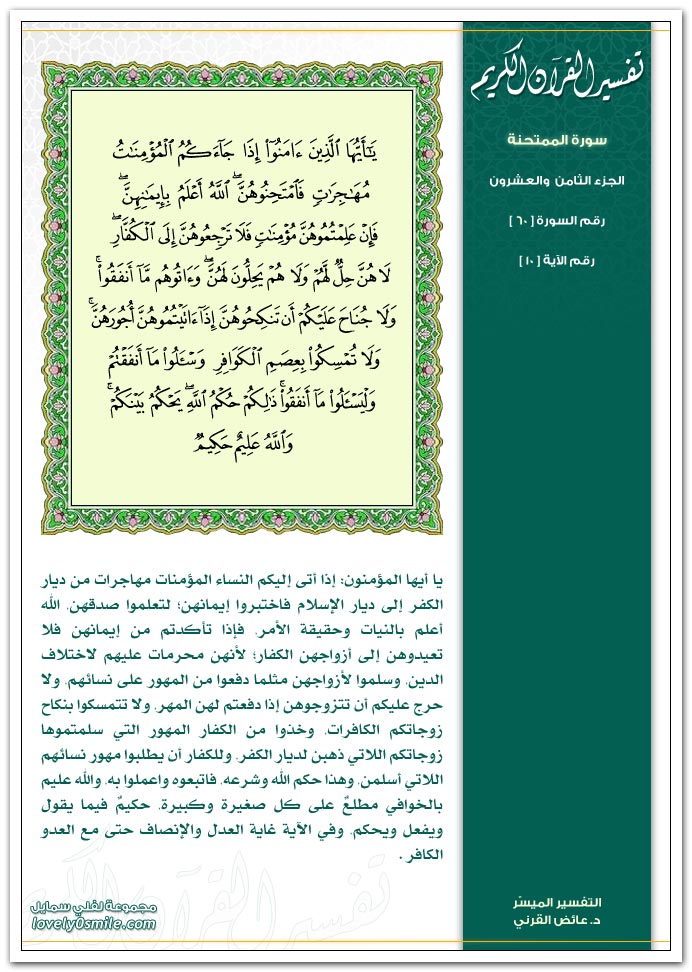 تفسير القرآن الكريم
سورة الممتحنة
الجزء الثامن والعشرون
رقم السورة [ ٦٠ ]
رقم الآية [ ١٠ ]
يَٰٓأَيُّهَا ٱلَّذِينَ ءَامَنُوٓا۟ إِذَا جَآءَكُمُ ٱلْمُؤْمِنَٰتُ
مُهَٰجِرَٰتٍ فَٱمْتَحِنُوهُنَّ ۖ ٱللَّهُ أَعْلَمُ بِإِيمَٰنِهِنَّ ۖ
فَإِنْ عَلِمْتُمُوهُنَّ مُؤْمِنَٰتٍ فَلَا تَرْجِعُوهُنَّ إِلَى ٱلْكُفَّارِ ۖ
لَا هُنَّ حِلٌّ لَّهُمْ وَلَا هُمْ يَحِلُّونَ لَهُنَّ ۖ وَءَاتُوهُم مَّآ أَنفَقُوا۟ ۚ
وَلَا جُنَاحَ عَلَيْكُمْ أَن تَنكِحُوهُنَّ إِذَآ ءَاتَيْتُمُوهُنَّ أُجُورَهُنَّ ۚ
وَلَا تُمْسِكُوا۟ بِعِصَمِ ٱلْكَوَافِرِ وَسْـَٔلُوا۟ مَآ أَنفَقْتُمْ
وَلْيَسْـَٔلُوا۟ مَآ أَنفَقُوا۟ ۚ ذَٰلِكُمْ حُكْمُ ٱللَّهِ ۖ يَحْكُمُ بَيْنَكُمْ ۚ
وَٱللَّهُ عَلِيمٌ حَكِيمٌ
يا أيها المؤمنون؛ إذا أتى إليكم النساء المؤمنات مهاجرات من ديار
الكفر إلى ديار الإسلام فاختبروا إيمانهن؛ لتعلموا صدقهن. الله
أعلم بالنيات وحقيقة الأمر. فإذا تأكدتم من إيمانهن فلا
تعيدوهن إلى أزواجهن الكفار؛ لأنهن محرمات عليهم لاختلاف
الدين. وسلموا لأزواجهن مثلما دفعوا من المهور على نسائهم. ولا
حرج عليكم أن تتزوجوهن إذا دفعتم لهن المهر. ولا تتمسكوا بنكاح
زوجاتكم الكافرات. وخذوا من الكفار المهور التي سلمتموها
زوجاتكم اللاتي ذهبن لديار الكفر. وللكفار أن يطلبوا مهور نسائهم
اللاتي أسلمن. وهذا حكم الله وشرعه. فاتبعوه واعملوا به. والله عليم
بالخوافي مطلعٌ على كل صغيرة وكبيرة. حكيمٌ فيما يقول
ويفعل ويحكم. وفي الآية غاية العدل والإنصاف حتى مع العدو
الكافر .
تفسير القرآن الكريم
مجموعة لفلي سمايل
lovely0smile.com
التفسير الميسّر
د. عائض القرني